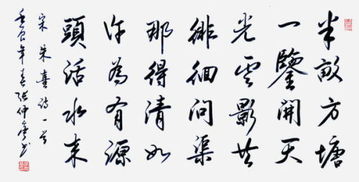 半畝方塘
一鑒開天
光雲影共
徘徊問渠
那得清如
許為有源
頭活水來
宋朱熹詩一首
年